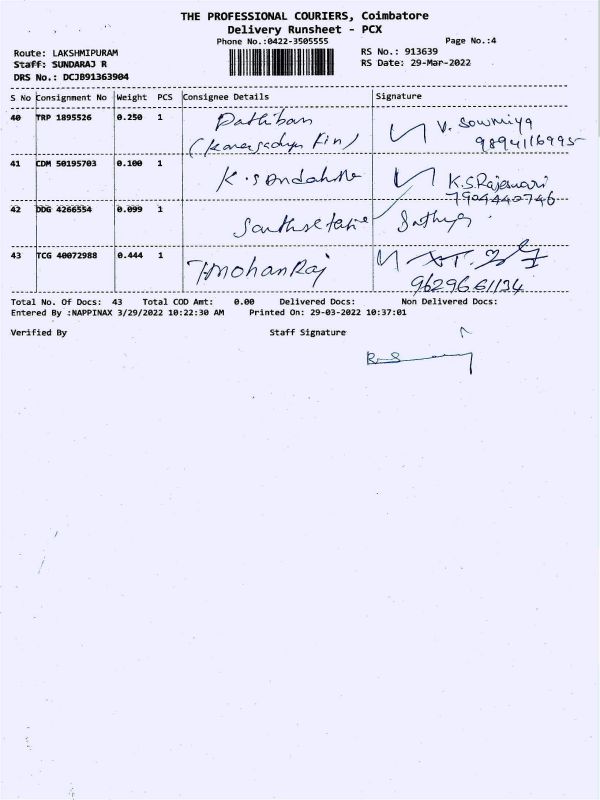 THE PROFESSIONAL COURIERS, Coimbatore
Delivery Runsheet - PCX
Phone No.:0422-3505555
Page No.:4
Route: LAKSHMIPURAM
RS No.: 913639
Staff: SUNDARAJ R
RS Date: 29-Mar-2022
DRS No.: DCJB91363904
S No Consignment No Weight PCS Consignee Details Signature
40 TRP 1895526 0.250 1 Pathiban V. Sowmiya
9894116995
41 CDM 50195703 0.100 1 K.S K.S.Rajeswari
7904440746
42 DDG 4266554 0.099 1 Sathya
43 TCG 40072988 0.444 1 T.mohanRaj
9629661134
Total No. Of Docs: 43 Total COD Amt: 0.00 Delivered Docs: Non Delivered Docs:
Entered By :NAPPINAX 3/29/2022 10:22:30 AM Printed On: 29-03-2022 10:37:01
Verified By Staff Signature